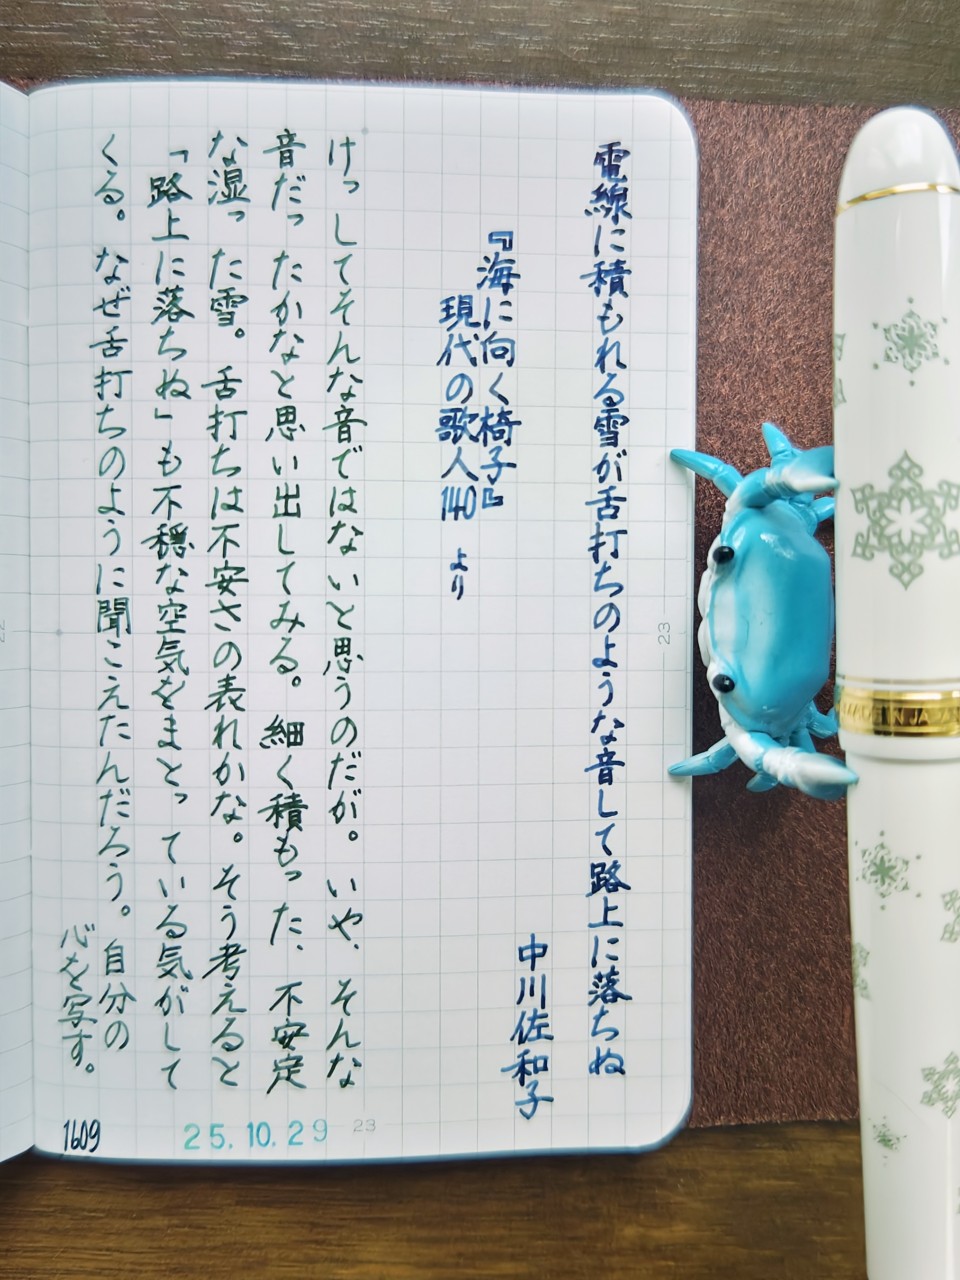 電線に積もれる雪が舌打ちのような音して路上に落ちぬ
中川佐和子
『海に向く椅子』
現代の歌人140 より
けっしてそんな音ではないと思うのだが。いや、そんな
音だったかなと思い出してみる。細く積もった、不安定
な湿った雪。舌打ちは不安さの表れかな。そう考えると
「路上に落ちぬ」も不穏な空気をまとっている気がして
くる。なぜ舌打ちのように聞こえたんだろう。自分の
心を写す。
1609
25.10.29
23
23
22
MADE IN JAPAN